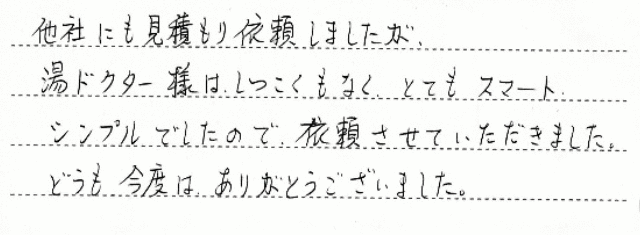 他社にも見積もり依頼しましたが、
湯ドクター様は、しつこくもなく、とてもスマート、
シンプルでしたので、依頼させていただきました。
どうも今度は、ありがとうございました。